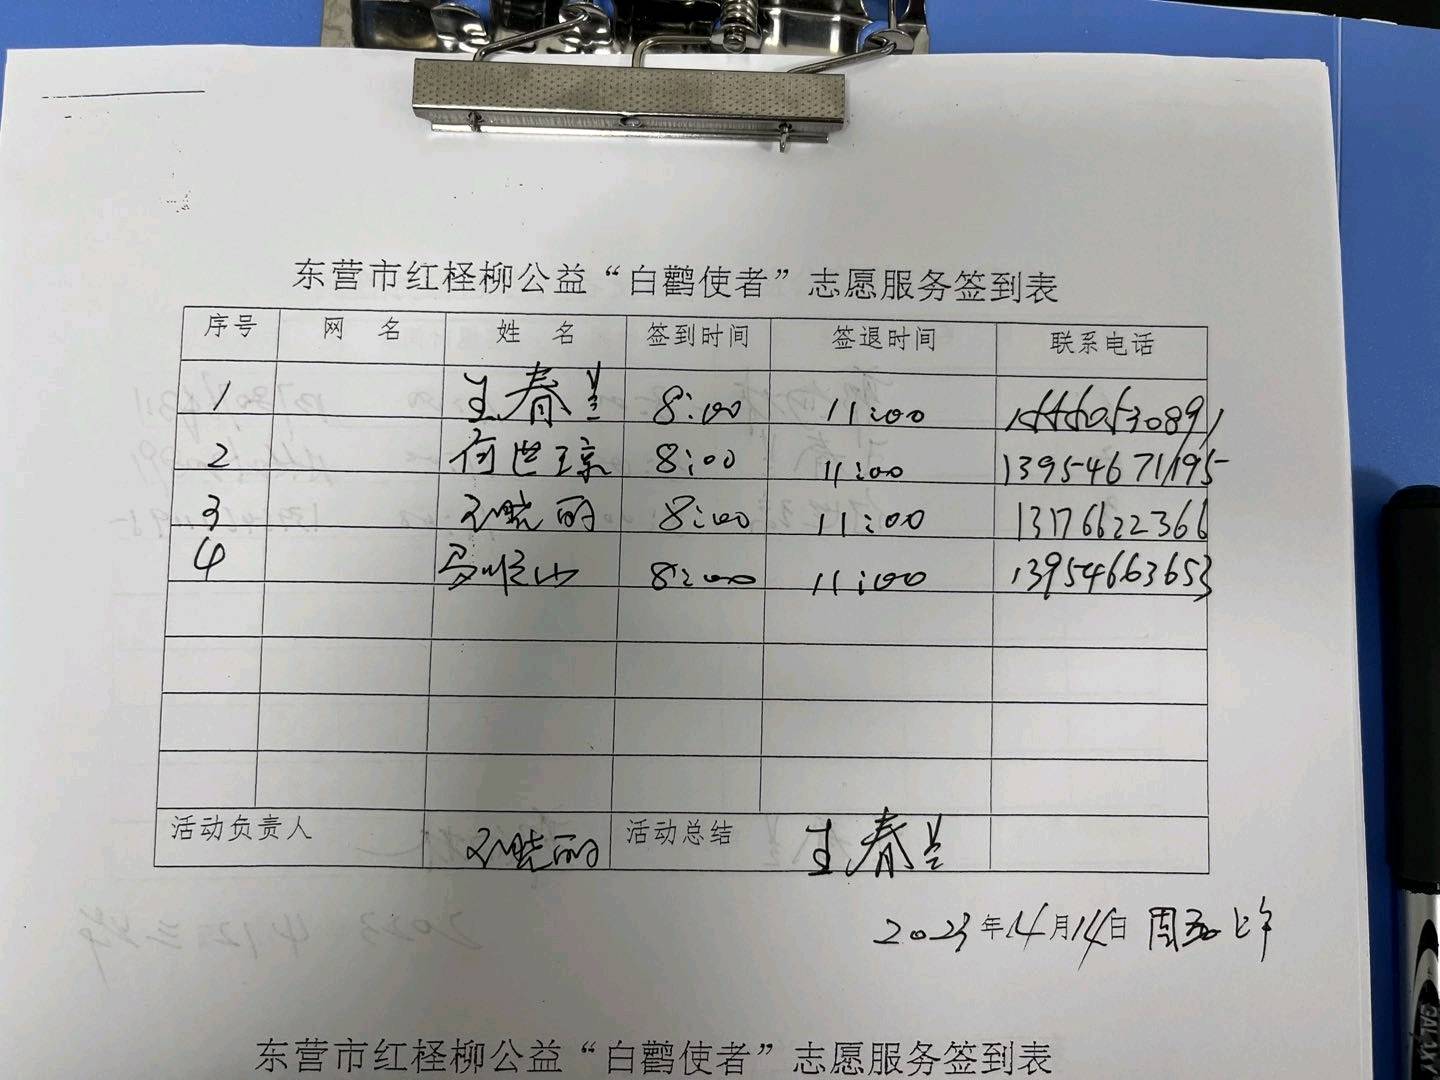 东营市红柽柳公益“白鹳使者”志愿服务签到表
序号 网 名 姓 名 签到时间 签退时间 联系电话
1 王春兰 8:00 11:00 15550530891
2 何世琼 8:00 11:00 13954671195
3 晓丽 8:00 11:00 13176622366
4 8:00 11:00 13954663653
活动负责人 晓丽 活动总结 王春兰
2023年4月14日 周五上午
东营市红柽柳公益“白鹳使者”志愿服务签到表